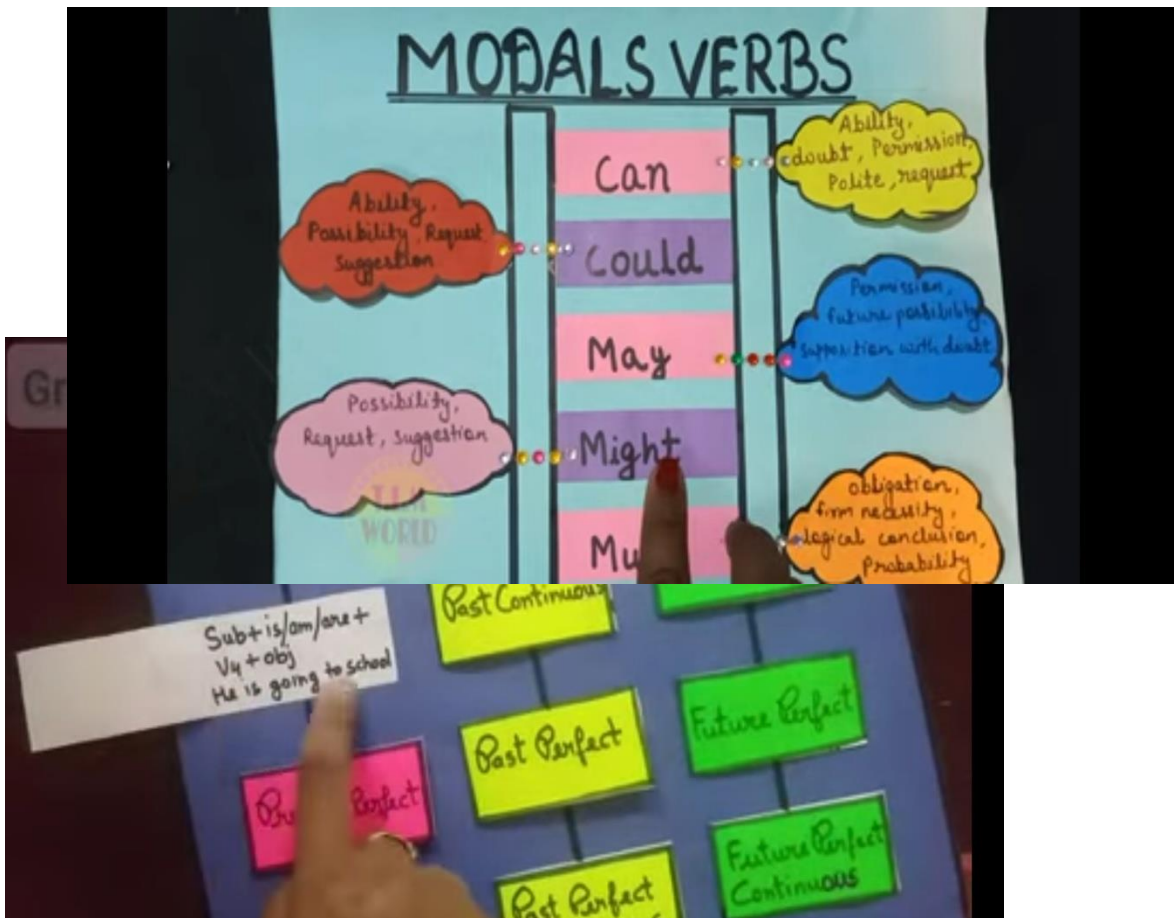 MODALS VERBS
Can
Ability,
doubt, Permission,
Polite, request
Ability,
Possibility, Request
Suggestion
Could
May
Permission,
future possibility,
supposition with doubt
Possibility,
Request, suggestion
Might
T.L.M
WORLD
Mu
obligation,
firm necessity,
logical conclusion,
Probability
Gr
Sub+is/am/are+
V4+obj
He is going to school
Past Continuous
Past Perfect
Future Perfect
Perfect
Future Perfect
Continuous
Past Perfect